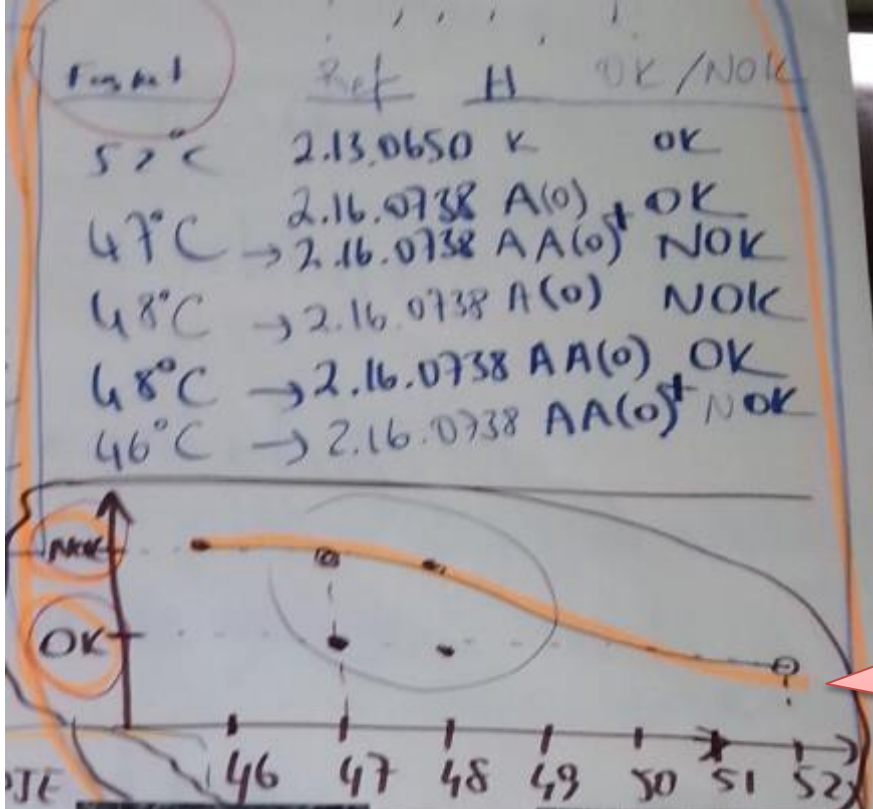 Ref H OK/NOK
52°C 2.13.0650 K OK
2.16.0738 A(0) OK
47°C → 2.16.0738 AA(0)+ NOK
48°C → 2.16.0738 A(0) NOK
48°C → 2.16.0738 AA(0) OK
46°C → 2.16.0738 AA(0)+ NOK
NOK
OK
46 47 48 49 50 51 52